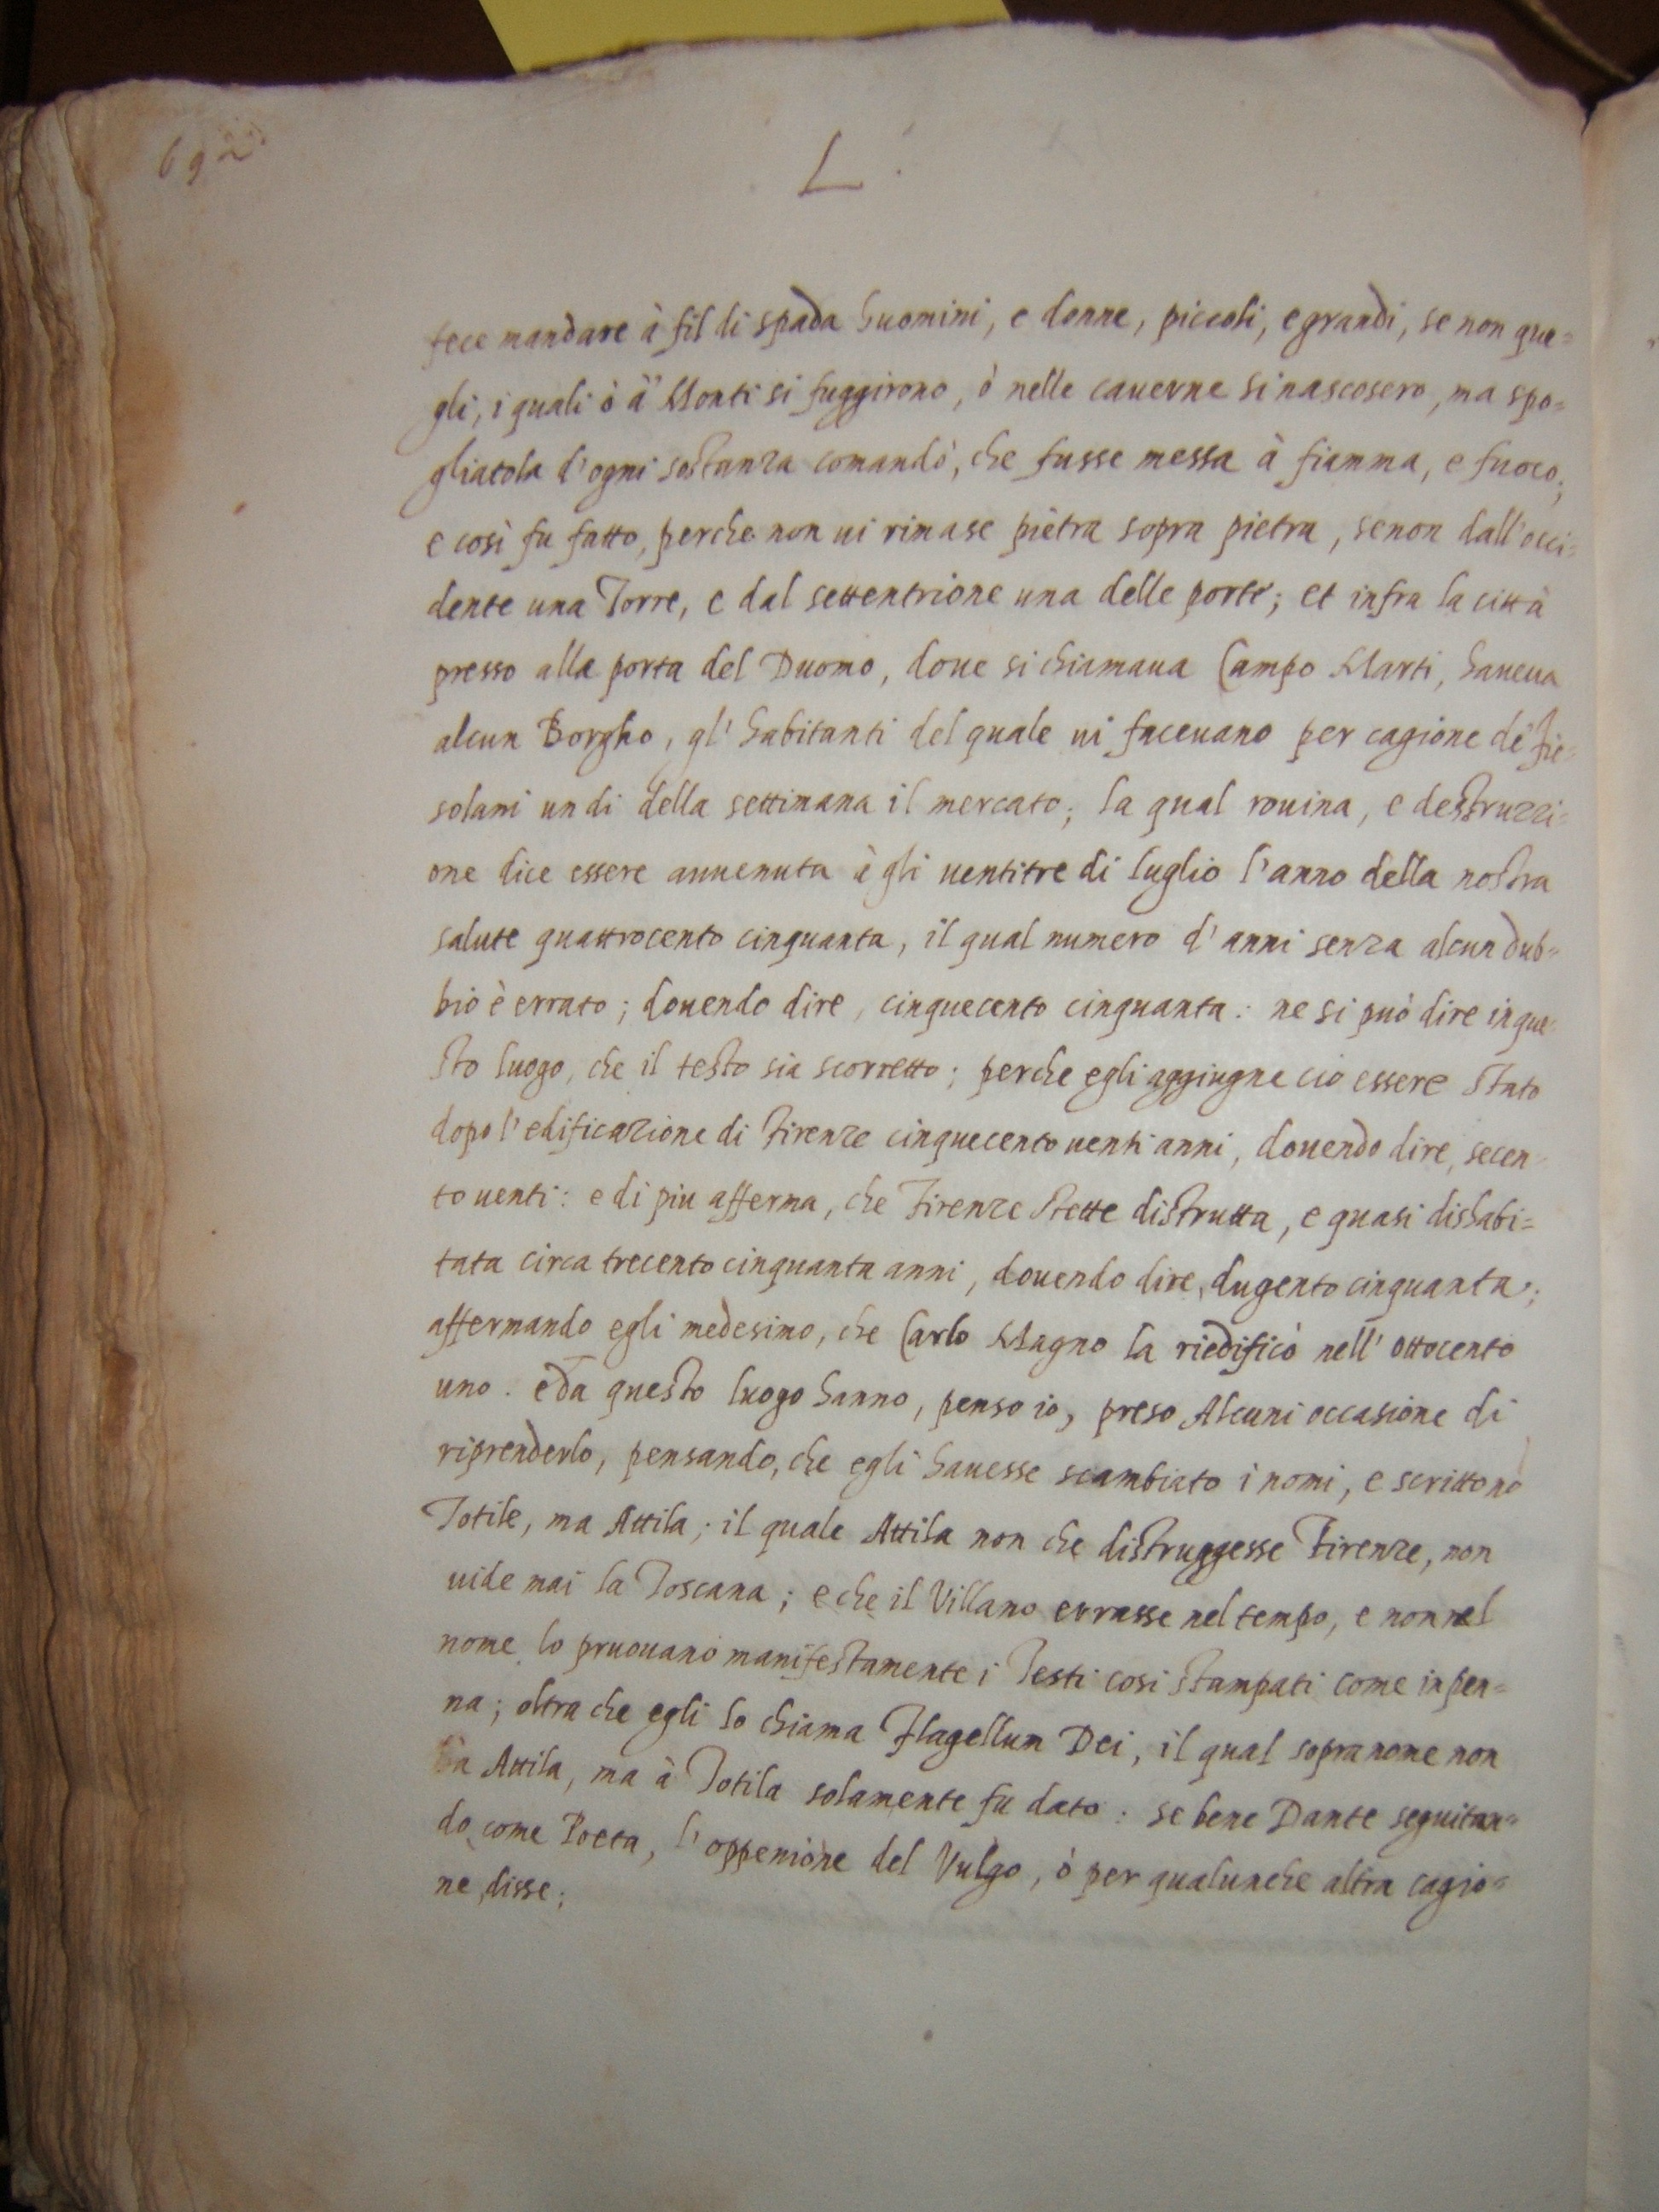 692
L.
fece mandare à fil di spada huomini, e donne, piccoli, e grandi, se non que=
gli, i quali ò a' Monti si fuggirono, ò nelle cauerne si nascosero, ma spo=
gliatola d'ogni sostanza comandò, che fusse messa à fiamma, e fuoco;
e così fu fatto, perche non ui rimase pietra sopra pietra, senon dall'occi=
dente una Torre, e dal settentrione una delle porte; et infra la città
presso alla porta del Duomo, doue si chiamaua Campo Marti, haueua
alcun Borgho, gl'habitanti del quale ui faceuano per cagione de' Fie=
solani un di della settimana il mercato; la qual rouina, e destruzzi=
one dice essere auuenuta à gli uentitre di luglio l'anno della nostra
salute quattrocento cinquanta, il qual numero d'anni senza alcun dub=
bio è errato; douendo dire, cinquecento cinquanta: ne si può dire in que=
sto luogo, che il testo sia scorretto; perche egli aggiugne ciò essere stato
dopo l'edificazione di Firenze cinquecento uenti anni, douendo dire, secen=
to uenti: e di piu afferma, che Firenze stette distrutta, e quasi dishabi=
tata circa trecento cinquanta anni, douendo dire, dugento cinquanta;
affermando egli medesimo, che Carlo Magno la riedificò nell'ottocento
uno. e da questo luogo hanno, penso io, preso Alcuni occasione di
riprenderlo, pensando, che egli hauesse scambiato i nomi, e scritto nò
Totile, ma Attila; il quale Attila non che distruggesse Firenze, non
uide mai la Toscana; e che il Villano errasse nel tempo, e non nel
nome lo pruouano manifestamente i Testi così stampati come in pen=
na; oltra che egli lo chiama Flagellum Dei, il qual sopranome non
ad Attila, ma à Totila solamente fu dato: se bene Dante seguitan=
do, come Poeta, l'oppenione del Vulgo, ò per qualunche altra cagio=
ne, disse;